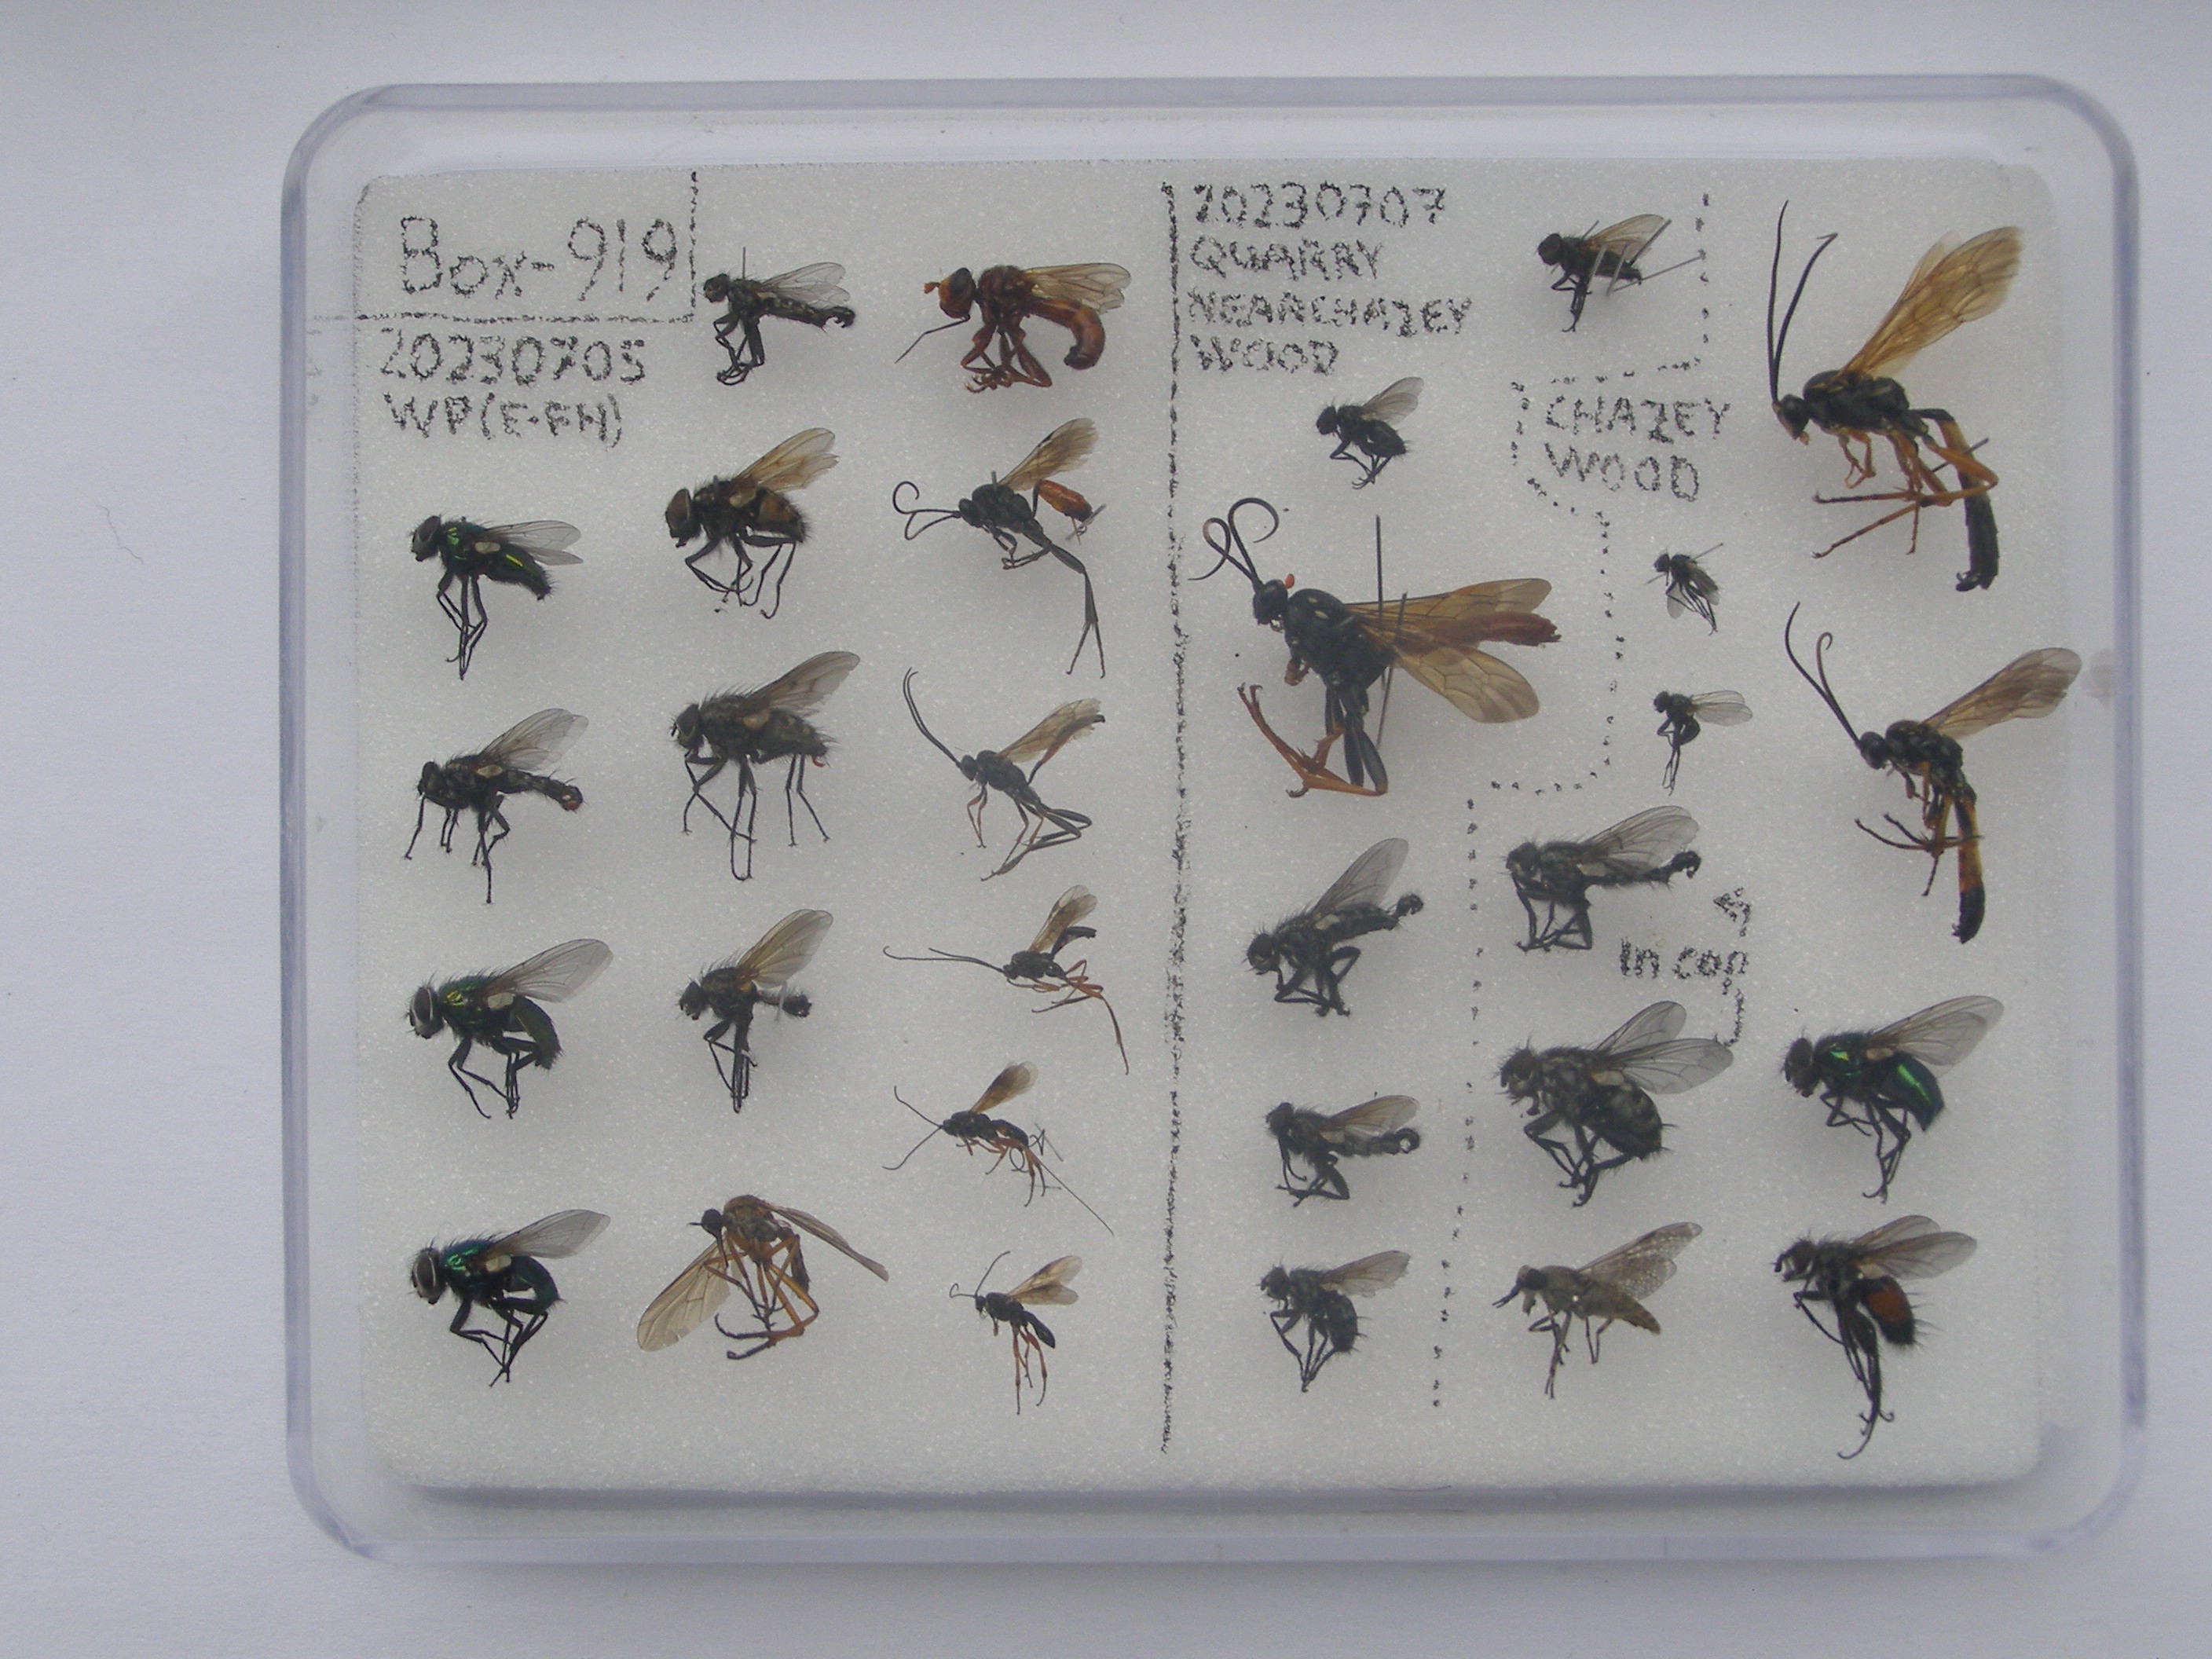 Box-919
20230705
WP(E-FH)
20230707
QUARRY
NEARCHAZEY
WOOD
CHAZEY
WOOD
In con